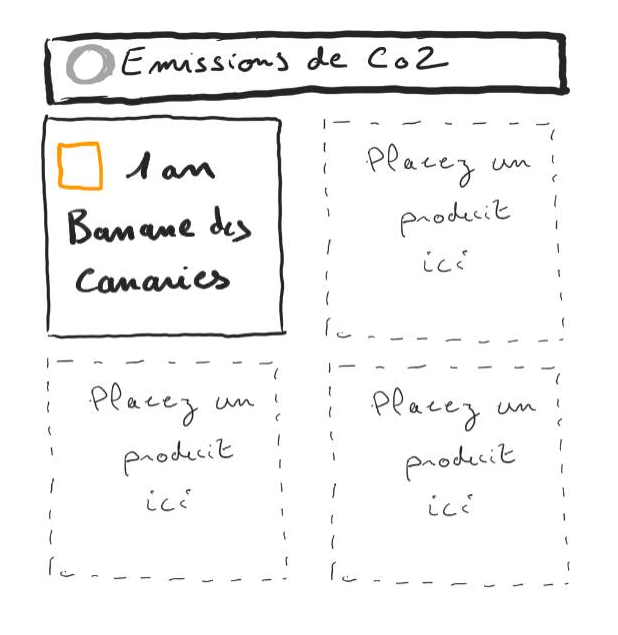 Emissions de Co2
1 an
Banane des
Canaries
Placez un
produit
ici
Placez un
produit
ici
Placez un
produit
ici